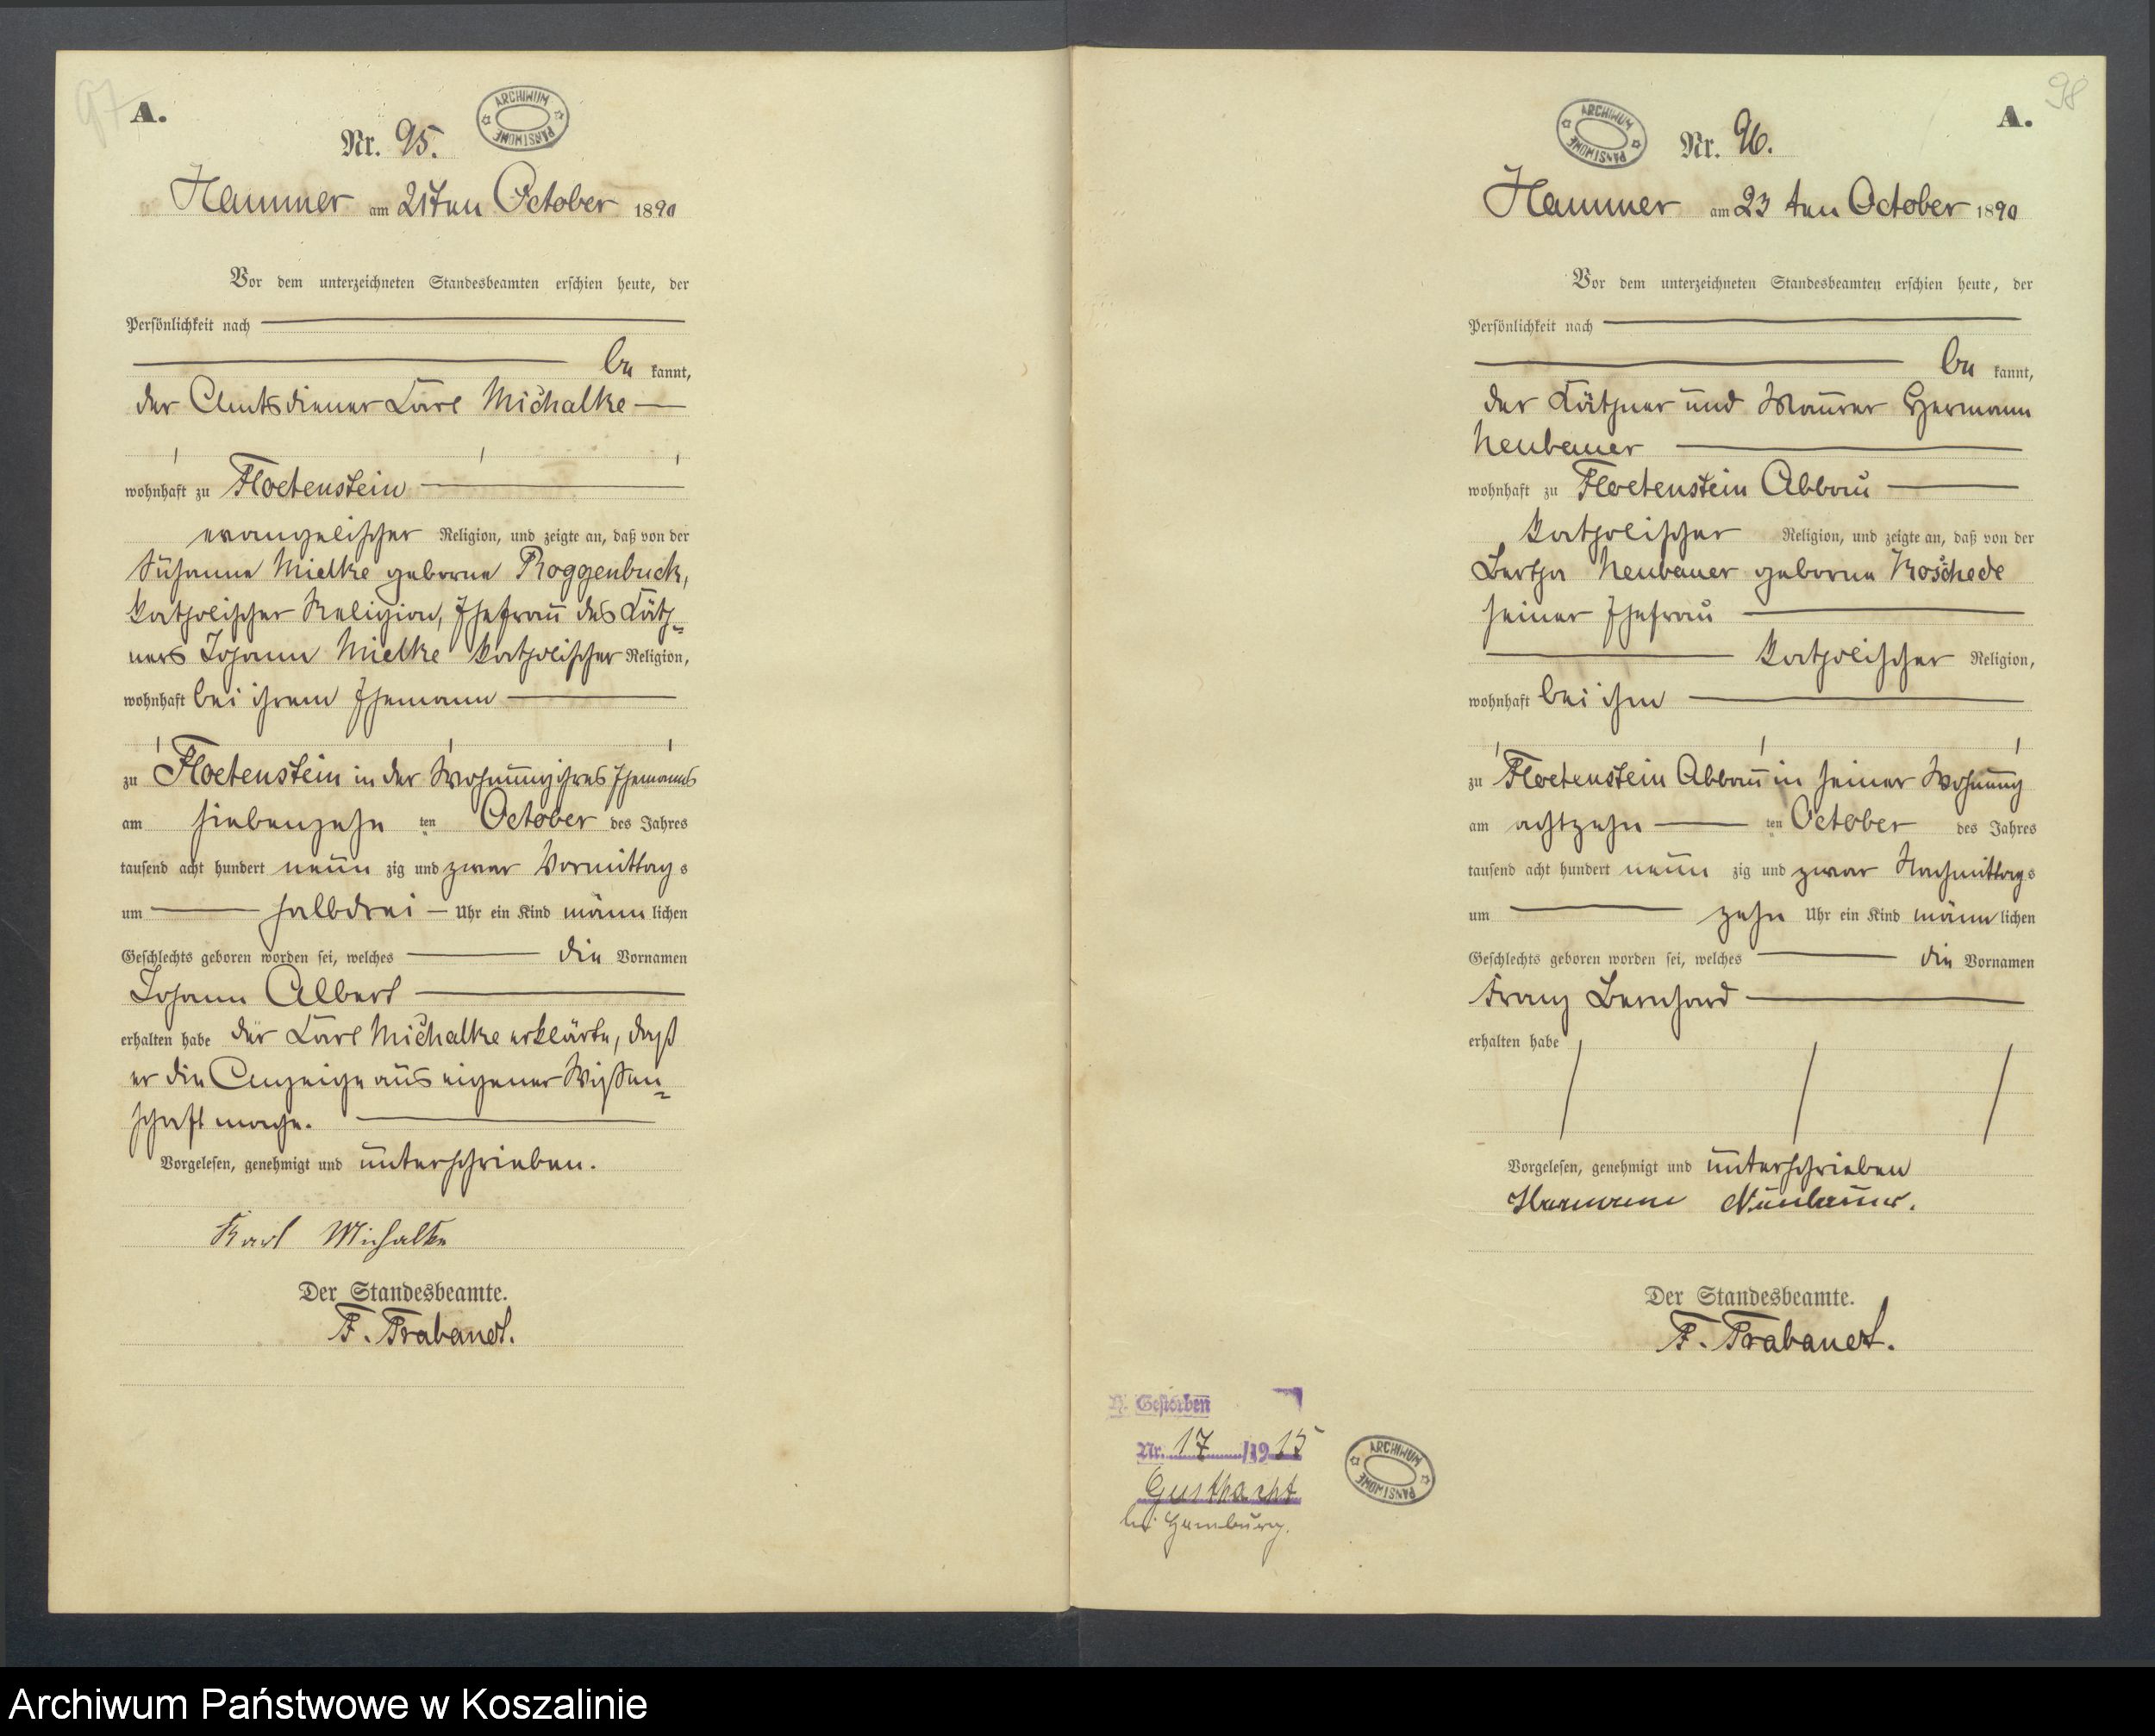 97
A.
ARCHIWUM PAŃSTWOWE
Nr. 95.
Hammer am 21ten October 1890
Vor dem unterzeichneten Standesbeamten erschien heute, der
Persönlichkeit nach
be kannt,
der Amtsdiener Carl Michalke
wohnhaft zu Floetenstein
evangelischer Religion, und zeigte an, daß von der
Susanna Mielke geborne Roggenbuck,
katholischer Religion, Ehefrau des Käth=
ners Johann Mielke katholischer Religion,
wohnhaft bei ihrem Ehemann
zu Floetenstein in der Wohnung ihres Ehemanns
am siebenzehn ten October des Jahres
tausend acht hundert neun zig und zwar Vormittag s
um halbdrei Uhr ein Kind männ lichen
Geschlechts geboren worden sei, welches die Vornamen
Johann Albert
erhalten habe der Carl Michalke erklärte, daß
er die Anzeige aus eigener Wissen=
schaft mache.
Vorgelesen, genehmigt und unterschrieben.
Karl Michalke
Der Standesbeamte.
F. Trabandt.
98
A.
ARCHIWUM PAŃSTWOWE
Nr. 96.
Hammer am 23 ten October 1890
Vor dem unterzeichneten Standesbeamten erschien heute, der
Persönlichkeit nach
be kannt,
der Käthner und Maurer Hermann
Neubauer
wohnhaft zu Floetenstein Abbau
katholischer Religion, und zeigte an, daß von der
Bertha Neubauer geborne Koschede
seiner Ehefrau
katholischer Religion,
wohnhaft bei ihm
zu Floetenstein Abbau in seiner Wohnung
am achtzehn ten October des Jahres
tausend acht hundert neun zig und zwar Nachmittags
um zehn Uhr ein Kind männ lichen
Geschlechts geboren worden sei, welches die Vornamen
Franz Bernhard
erhalten habe
Vorgelesen, genehmigt und unterschrieben
Hermann Neubauer.
Der Standesbeamte.
F. Trabandt.
Gestorben
Nr. 17 /1915
bei Hamburg.
ARCHIWUM PAŃSTWOWE
Archiwum Państwowe w Koszalinie